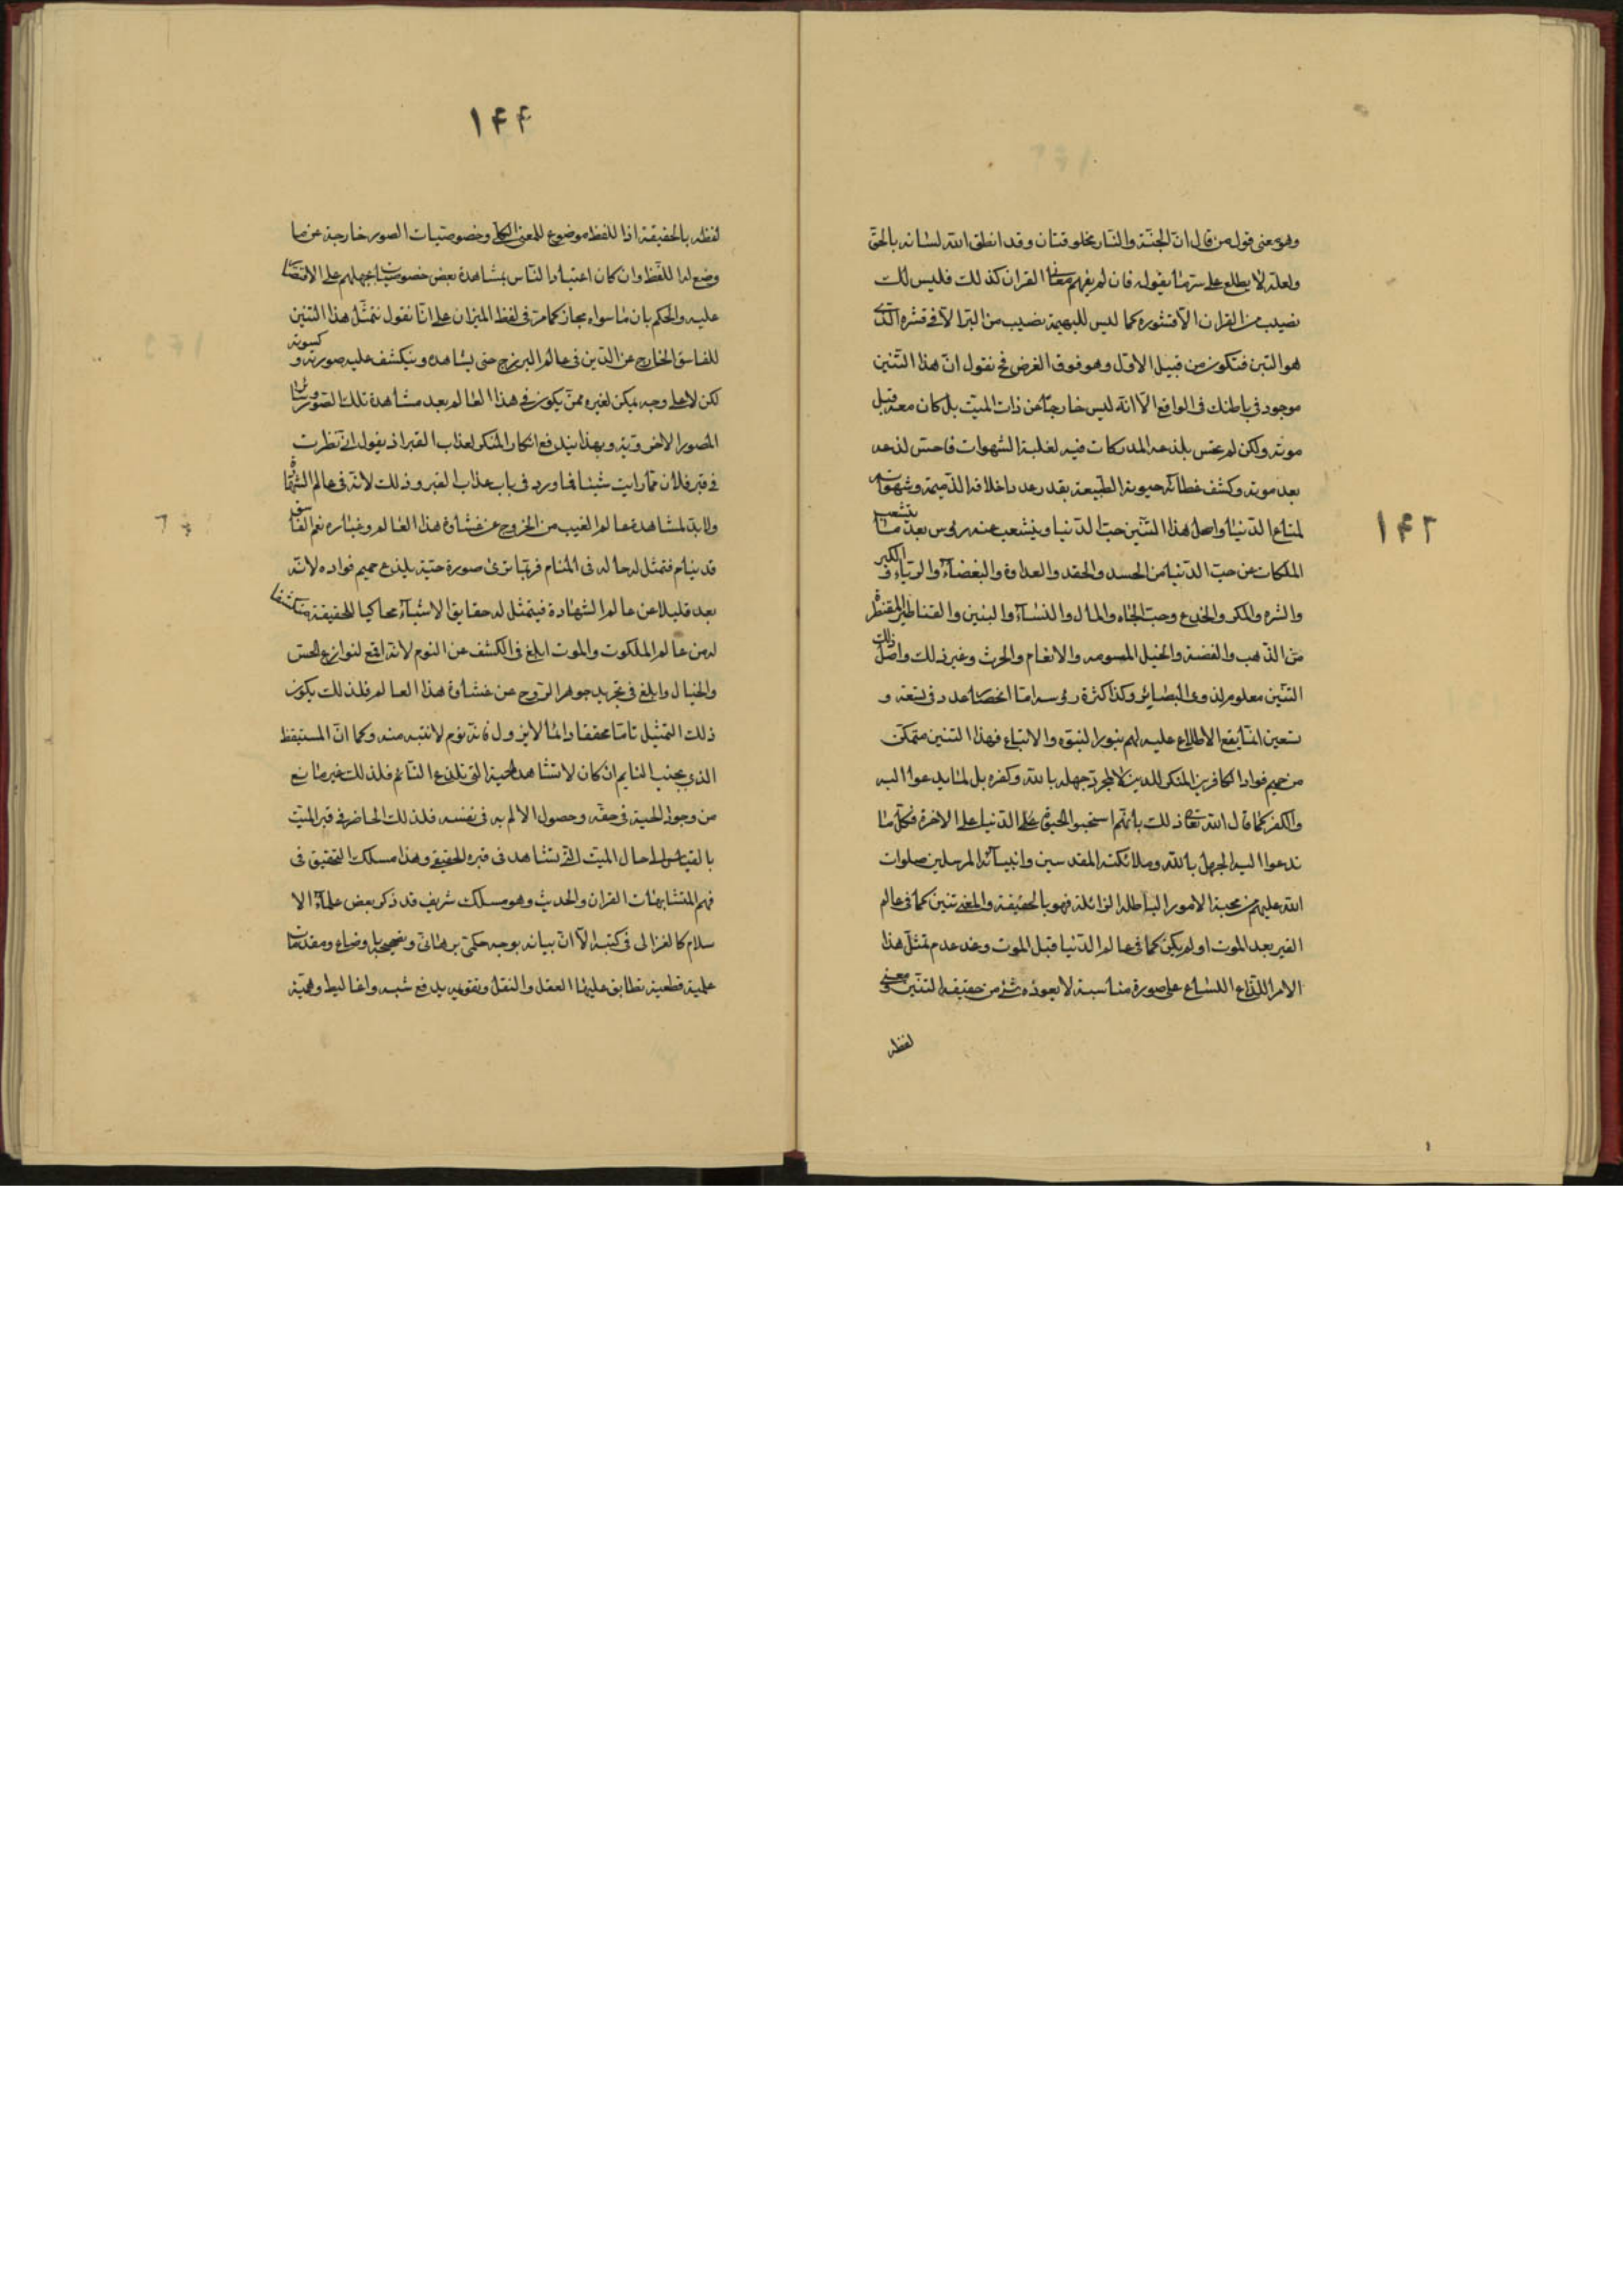 وهو معنى قول من قال ان الجنة والنار مخلوقتان وقد انطق الله لسانه بالحق
ولعله لا يطلع على سر ما يقوله فان لم يفهم معانى القران كذلك فليس لك
نصيب من القران الا قشوره كما ليس للبهيمة نصيب من البر الا فى قشره الذى
هو التبن فتكون من قبيل الاول وهو فوق الغرض فح نقول ان هذا التنين
موجود فى باطنك فى الواقع الا انه ليس خارجا عن ذات الميت بل كان معه قبل
موته ولكن لم يحس بلذعه المدركات فيه لغلبة الشهوات فاحس لذعه
بعد موته وكشف غطائه حيوته الطبيعة بقدر عدد اخلاقه الذميمة وشهواته
لمتاع الدنيا واصل هذا التنين حب الدنيا وينشعب عنه رؤس بعدد ما ينشعب
الملكات عن حب الدنيا من الحسد والحقد والعداوة والبغضاء والرياء والكبر
والشره والمكر والخدع وحب الجاه والمال والنساء والبنين والقناطير المقنطرة
من الذهب والفضة والخيل المسومه والانعام والحرث وغير ذلك واصل ذلك
التنين معلوم لذوى البصاير وكذا كثرة رؤسه اما انحصار عدد فى تسعة و
تسعين انما يقع الاطلاع عليه لهم بنور النبوة والاتباع فهذا التنين متمكن
من صميم فواد الكافرين المنكر للدين لا لمجرد جهله بالله وكفره بل لما يدعوا اليه
والكفر كما قال الله تعا ذلك بانهم استحبوا الحيوة على الدنيا على الاخرة فكل ما
تدعوا اليه الجهل بالله وملائكته المقدسين وانبيائه المرسلين صلوات
الله عليهم من محبة الامور الباطلة الزائلة فهو بالحقيقة والمعنى تنين كما فى عالم
القبر بعد الموت او لم يكن كما فى عالم الدنيا قبل الموت وعند عدم تمثل هذا
الامر اللذاع اللساع على صورة مناسبة لا يعوزه شئ من حقيقة التنين معنى و
لفظه
١٤٢
١٤٤
لفظه بالحقيقة اذا للفظ موضوع للمعنى الكلى وخصوصيات الصور خارجة عن ما
وضع له اللفظ وان كان اعتياد الناس بمشاهدة بعض خصوصيات يحملهم على الاقتصار
عليه والحكم بان ما سواه مجاز كما مر فى لفظ الميزان على انا نقول تمثل هذا التنين
للفاسق الخارج عن الدين فى عالم البرزخ حتى يشاهده وينكشف عليه صورته و كسوته
لكن لا على وجه يمكن لغيره ممن يكون فى هذا العالم بعد مشاهدة تلك الصورة
الصور الاخروية وبهذا يندفع انكار المنكر لعذاب القبر اذ يقول انى نظرت
فى قبر فلان فما رايت شيئا مما ورد فى باب عذاب القبر وذلك لانه فى عالم الشهادة
ولا بد لمشاهدة عالم الغيب من الخروج عن غشاوة هذا العالم وغباره نعم الفاسق
قد ينام فتمثل له حاله فى المنام فربما يرى صورة حية يلذع صميم فواده لانه
بعد قليلا عن عالم الشهادة فيتمثل له حقايق الاشياء محاكيا للحقيقة منكشفا
له من عالم الملكوت والموت ابلغ فى الكشف عن النوم لانه اقمع لنوازع الحس
والخيال وابلغ فى تجريد جوهر الروح عن غشاوة هذا العالم فلذلك يكون
ذلك التمثيل تاما محققا دائما لا يزول فانه نوم لا ينتبه منه وكما ان المستيقظ
الذى بجنب النايم ان كان لا تشاهد الحية التى تلذع النائم فلذلك غير مانع
من وجود الحية فى حقه وحصول الالم به فى نفسه فلذلك الحاضر فى قبر الميت
بالقياس الى حال الميت التى يشاهد فى قبره الحقيقى وهذا مسلك التحقيق فى
فهم المتشابهات القران والحديث وهو مسلك شريف قد ذكر بعض علماء الا
سلام كالغزالى فى كتبه الا ان بيانه بوجه حكمى برهانى وتصحيح باوضاع ومقدمات
علمية قطعية تطابق عليها العقل والنقل وتقويمه بدفع شبه واغاليط وهمية